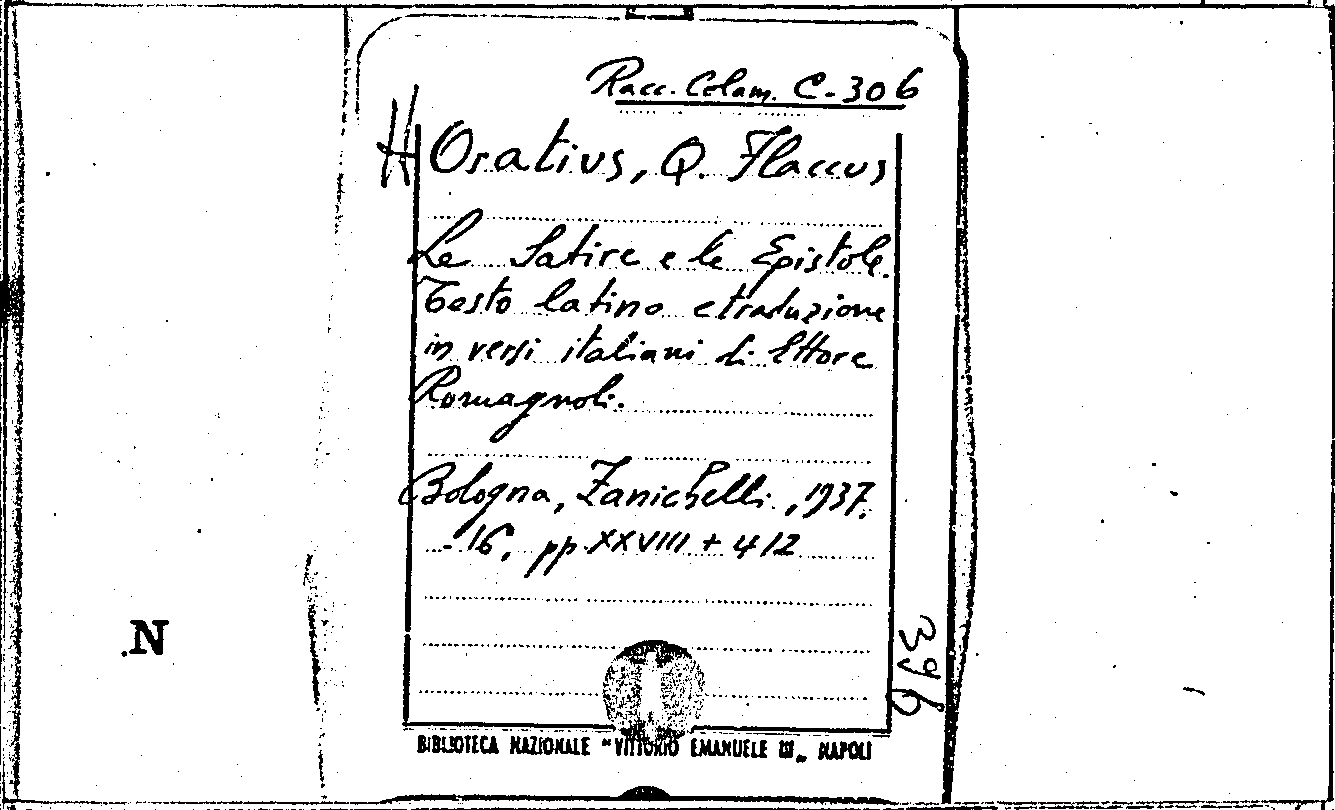 Racc. Colam. C-306
HOratius, Q. Flaccus
Le Satire e le Epistole.
Testo latino e traduzione
in versi italiani di Ettore
Romagnoli.
Bologna, Zanichelli, 1937.
-16, pp XXVIII + 412
396
.N
BIBLIOTECA NAZIONALE "VITTORIO EMANUELE III„ NAPOLI